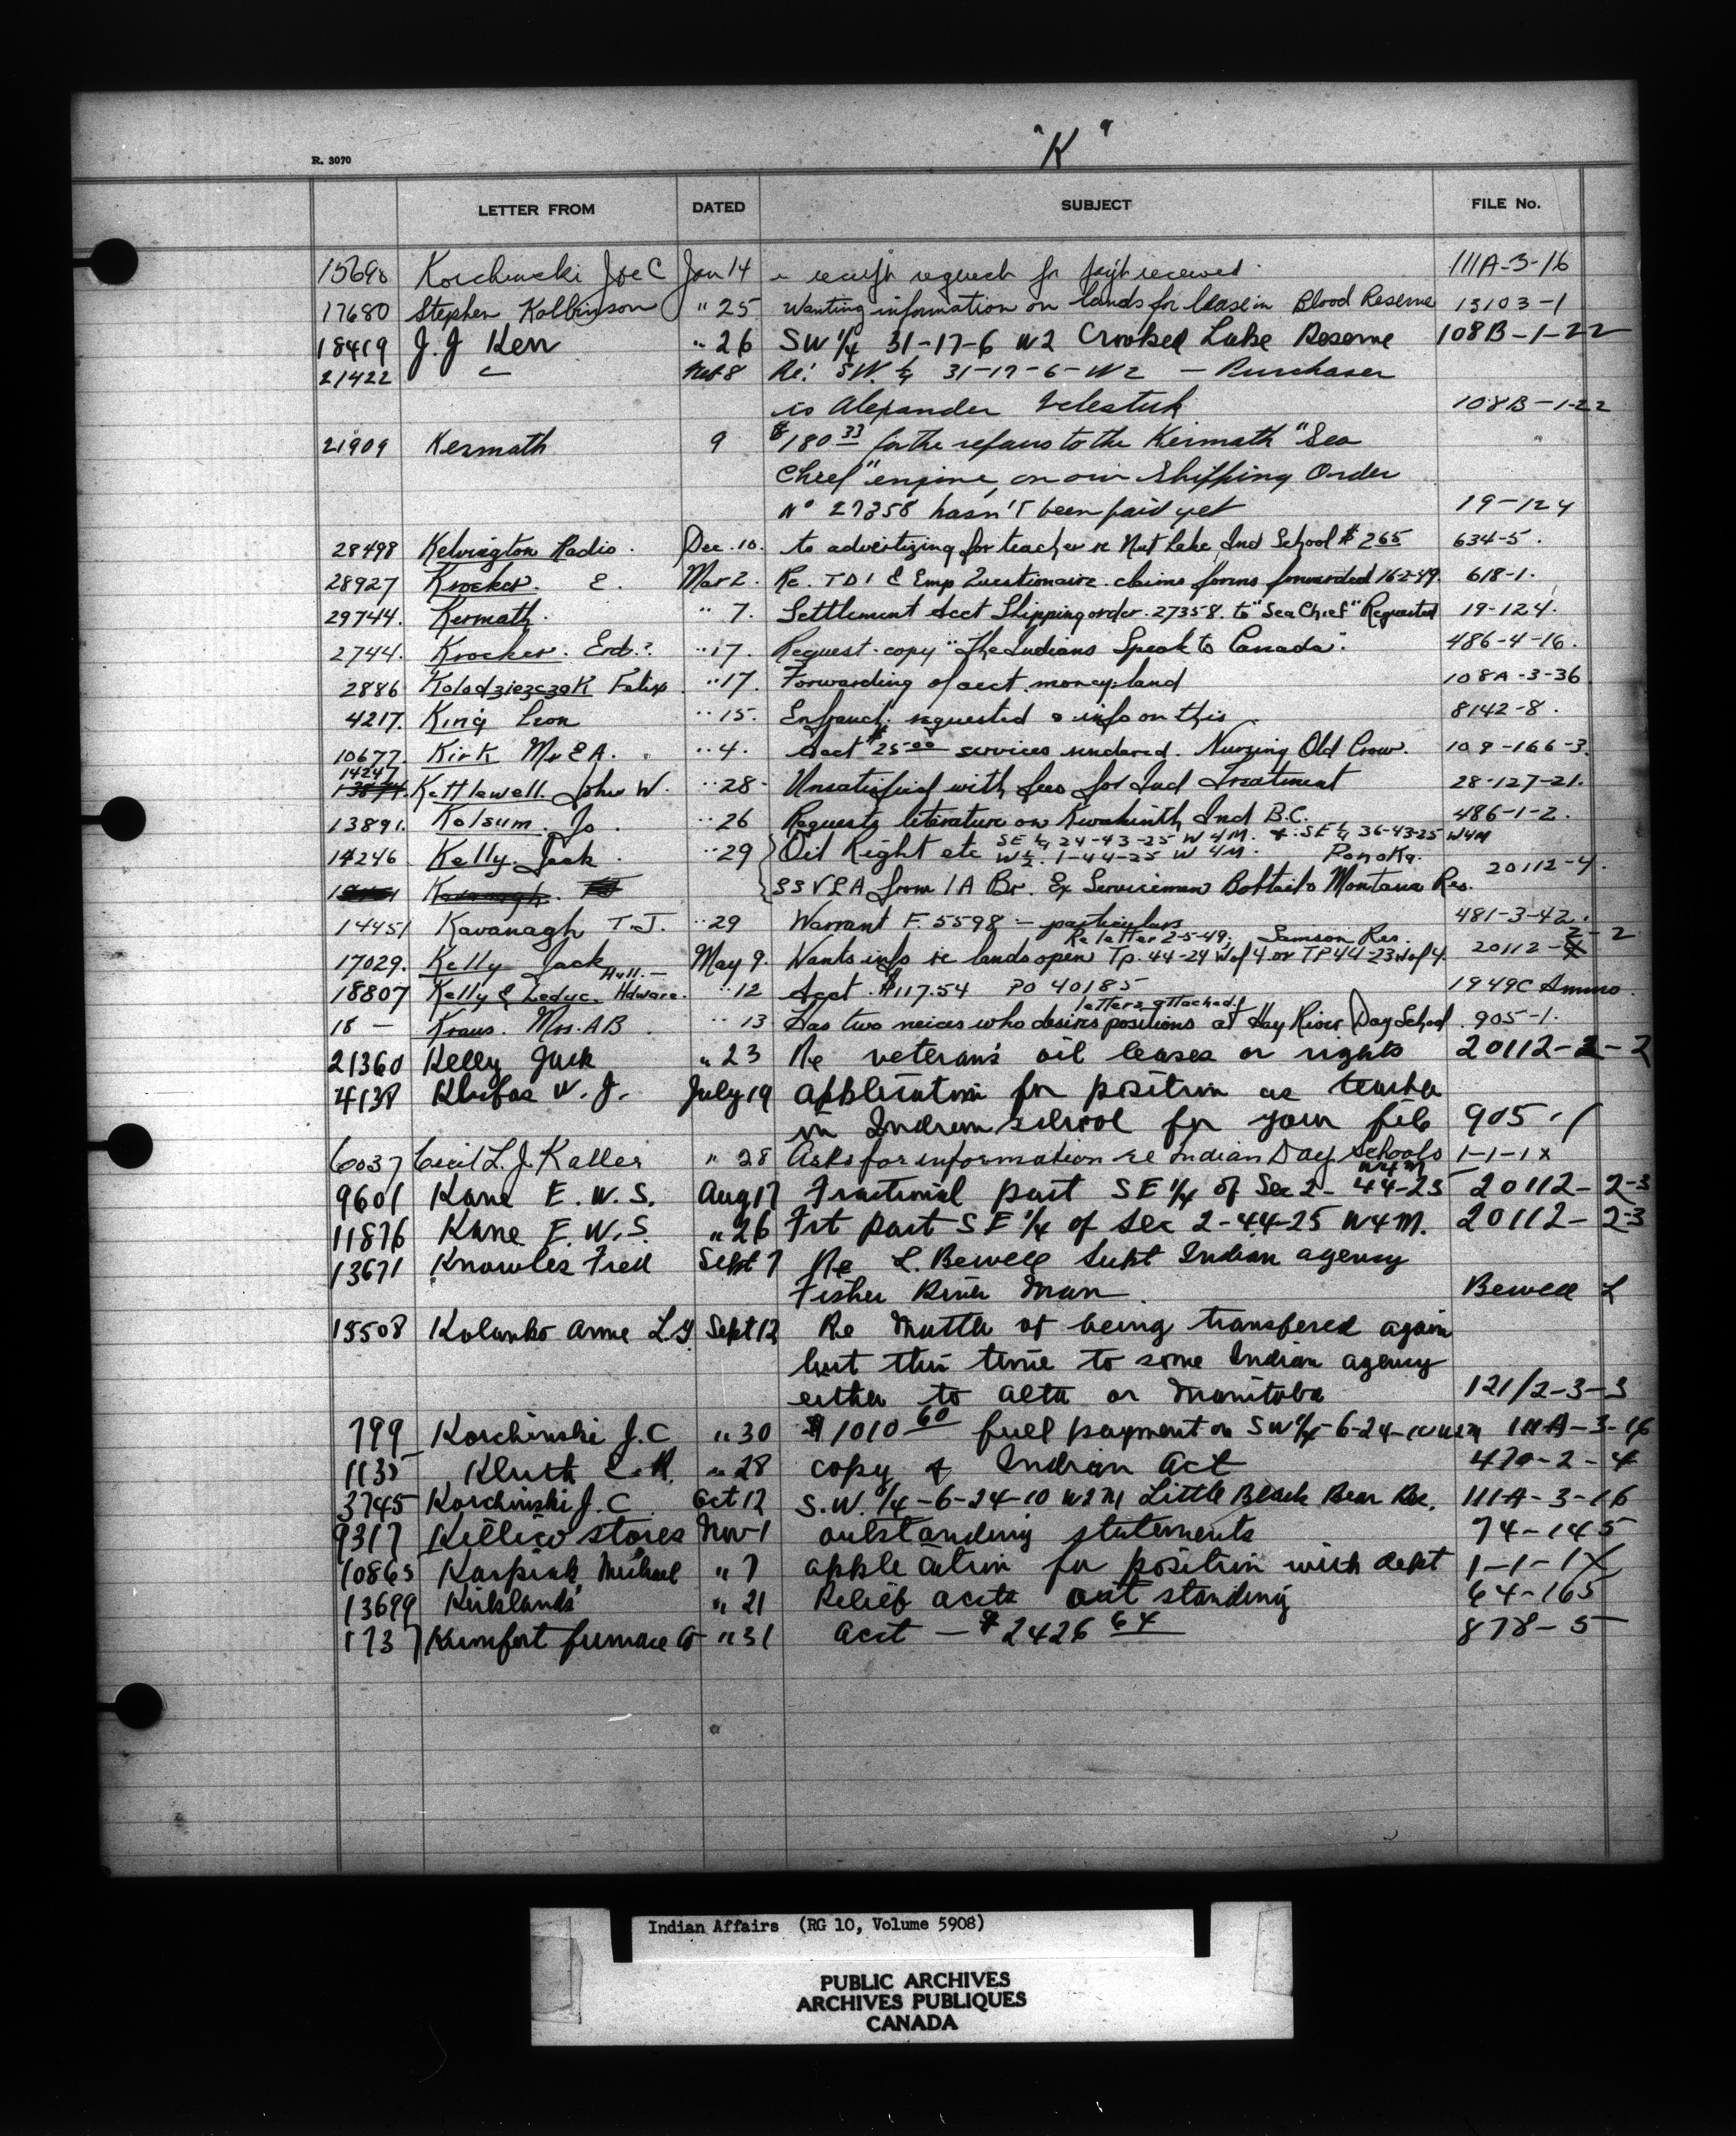 "K"
R. 3070
LETTER FROM DATED SUBJECT FILE No.
15690 Korchinski Joe C Jan 14 receipt request for received 111A-3-16
17680 Stephen Kolbinson " 25 Wanting information on lands for lease in Blood Reserve 13103-1
18419 J. J Kerr " 26 SW 1/4 31-17-6 W2 Crooked Lake Reserve 108B-1-22
21422 " Feb 8 Re: SW. 1/4 31-17-6-W2 — Purchaser
is Alexander 108B-1-22
21909 Kermath 9 $180 33 for the repairs to the Kermath "Sea "
Chief" engine, on our Shipping Order
No 27358 hasn't been paid yet 19-124
28498 Kelvington Radio. Dec. 10. to advertizing for teacher re Nut Lake Ind School $2.65 634-5.
28927 Krocker. E. Mar 2. Re. TD1 & Emp Questionaire. claims forms forwarded 16-2-49. 618-1.
29744. Kermath. " 7. Settlement Acct Shipping order. 27358. to "Sea Chief" Requested 19-124.
2744. Krocker. Erd.? " 17. Request. copy "The Indians Speak to Canada". 486-4-16.
2886 Kolodziezczak Felix " 17. Forwarding of acct. money: land 108A-3-36
4217. King Leon " 15. Enfranch. requested & info on this. 8142-8.
10677. Kirk Mr E A. " 4. Acct $25.00 services rendered. Nursing Old Crow. 109-166-3.
14247
13874. Kettlewell. John W. " 28- Unsatisfied with fees for Ind Treatment 28-127-21.
13891. Kolsum. Jo. " 26 Requests literature on Kwakiuth Ind B.C. 486-1-2.
14246 Kelly. Jack. " 29 Oil Right etc SE 1/4 24-43-25 W4M. & SE 1/4 36-43-25 W4M
W 1/2. 1-44-25 W 4M. Ponoka.
Kavanagh. TJ SSVLA from 1A Br. Ex Servicemen Bobtail & Montana Res. 20112-4.
14451 Kavanagh T.J. " 29 Warrant F. 5598 — particulars 481-3-42.
Re letter 2-5-49; Samson Res. 2-2
17029. Kelly Jack May 9. Wants info re lands open Tp. 44-24 W of 4 or TP 44-23 W of 4. 20112-
Hull.—
18807 Kelly & Leduc. Hdware. " 12 Acct. $117.54 PO 40185 1949C Ammo.
letters attached.
18 — Kraus. Mrs. AB. " 13 Has two neices who desires positions at Hay River Day School. 905-1.
21360 Kelly Jack " 23 Re veteran's oil leases or rights 20112-2-2
4138 Klufas W. J. July 19 application for position as teacher
in Indian school for your file 905-1
6037 Cecil L. J. Kaller " 28 Asks for information re Indian Day Schools 1-1-1x
W4M
9601 Kane E. W. S. Aug 17 Fractional part SE 1/4 of Sec 2- 44-25 20112-2-3
11876 Kane E. W. S. " 26 Frt part SE 1/4 of sec 2-44-25 W4M. 20112-2-3
13671 Knowles Fred Sept 7 Re L. Bewell Supt Indian agency
Fisher River Man. Bewell L
15508 Kolanko Anne L Sept 12 Re matter of being transfered again
but this time to some Indian agency
either to Alta or Manitoba 121/2-3-3
799 Korchinski J. C " 30 $1010 60 full payment on SW 1/4-6-24-10 W2M 111A-3-16
1135 E. R. " 28 copy of Indian Act 470-2-4
3745 Korchinski J. C Oct 12 S.W. 1/4-6-24-10 W2M Little Black Bear Res. 111A-3-16
9317 Killico stores Nov 1 outstanding statements 74-145
10865 Karpiak, Michael " 7 application for position with dept 1-1-1X
13699 Kirklands " 21 Relief accts out standing 64-165
1737 Kumfort furnace Co " 31 acct — $2426 64 878-5
Indian Affairs (RG 10, Volume 5908)
PUBLIC ARCHIVES
ARCHIVES PUBLIQUES
CANADA